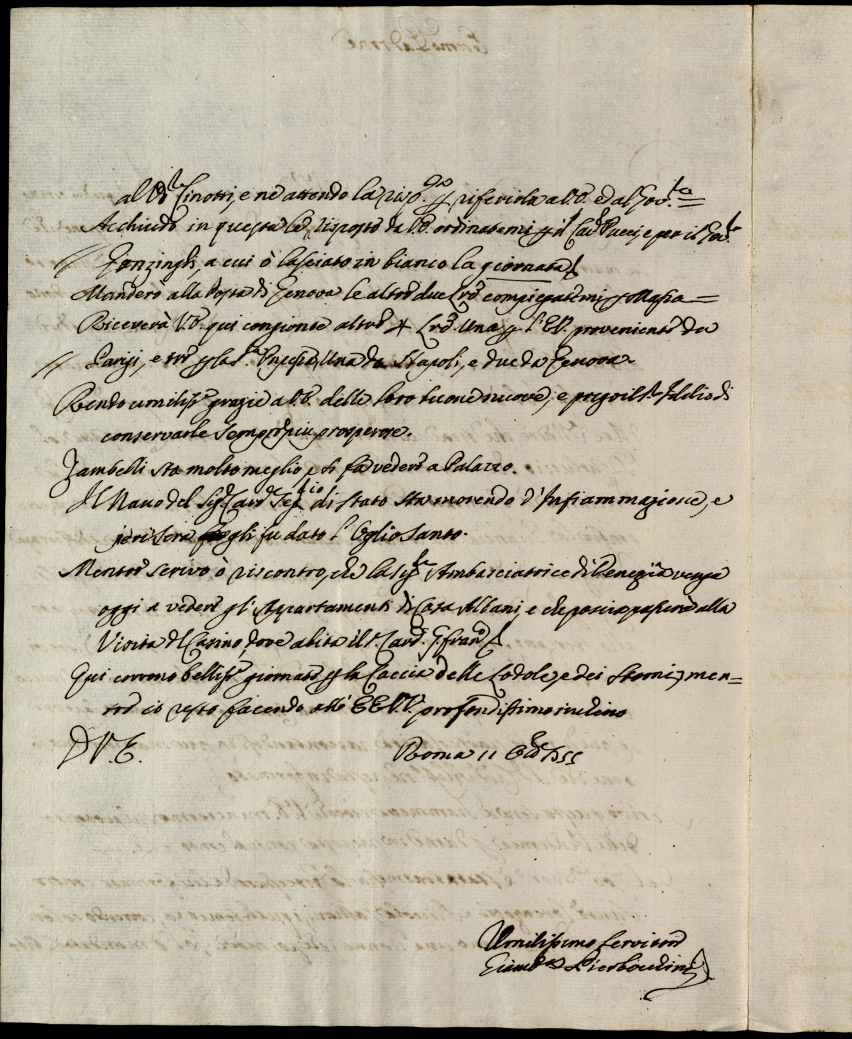 al Sig.r Cinotti, e ne attendo la risp.ta p riferirla a V.E. ed al Gov.
Acchiudo in questa le risposte da V.E. ordinatemi p il Card. Pucci, e per il
a cui ò lasciato in bianco la giornata
Manderò alla Posta di Genova le altre due compiegatemi p
Riceverà V.E. qui congionte altre 4 Una p l'E.V. proveniente da
Parigi, e tre p la Una da Napoli, e due da Genova
Rendo umiliss.e grazie a V.E. delle loro buone nuove, e prego il Sig. Iddio di
conservarle sempre più prosperose.
Zambelli sta molto meglio, e si fà vedere a Palazzo.
Il del Sig. Card. Seg.rio di Stato sta morendo d'Infiammazione, e
jeri sera gli fu dato l'Oglio Santo.
Mentre scrivo ò riscontro, che la Sig.ra Ambasciatrice di Venezia venga
oggi a vedere gl'Appartamenti di Casa Albani, e che poscia passerà alla
Visita del Casino, dove abita il S. Card. Gio. Fran.
Qui corrono belliss.e giornate p la Caccia delle Lodole, e dei Storni, men=
tre io resto facendo all'EE.VV. profondissimo inchino
D.V.E. Roma 11 Ott.re 755
Umilissimo Servitore
Giamb.a